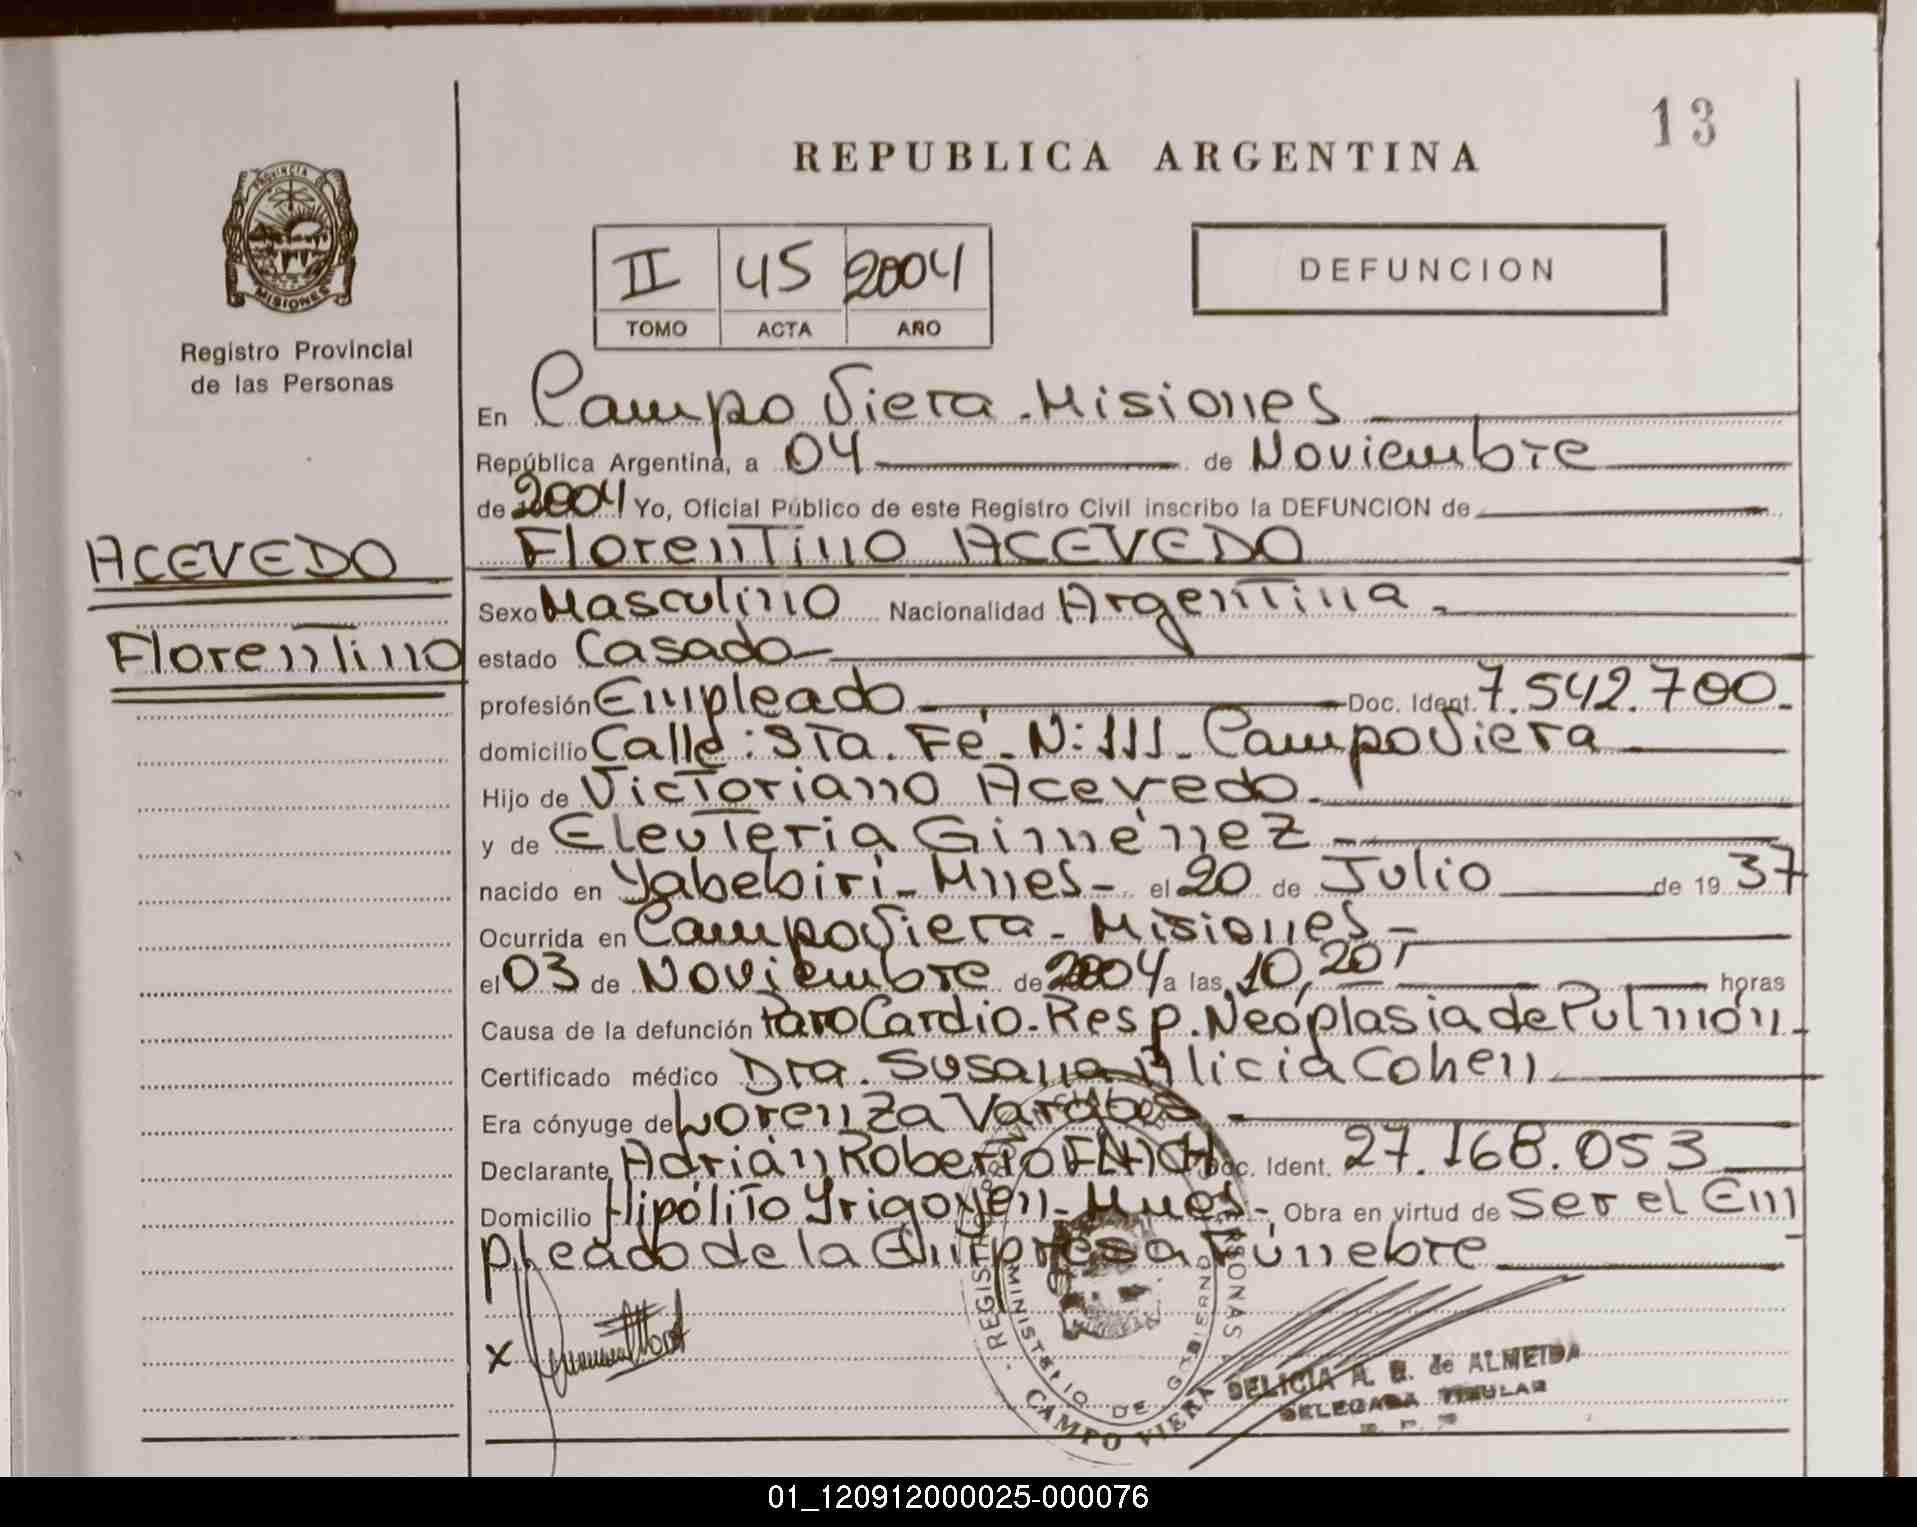 13
REPUBLICA ARGENTINA
PROVINCIA DE
MISIONES
Registro Provincial
de las Personas
II 45 2004
TOMO ACTA AÑO
DEFUNCION
En Campo Viera - Misiones
República Argentina, a 04 de Noviembre
de 2004 Yo, Oficial Público de este Registro Civil inscribo la DEFUNCION de
ACEVEDO
Florentino
Florentino ACEVEDO
Sexo Masculino Nacionalidad Argentina -
estado Casado
profesión Empleado Doc. Ident. 7.542.700.
domicilio Calle: Sta. Fé - N: 111 - Campo Viera
Hijo de Victoriano Acevedo
y de Eleuteria Giménez
nacido en Yabebirí - Mnes - el 20 de Julio de 19 37
Ocurrida en Campo Viera - Misiones -
el 03 de Noviembre de 2004 a las 10,20 horas
Causa de la defunción Paro Cardio-Resp. Neoplasia de Pulmón -
Certificado médico Dra. Susana Alicia Cohen
Era cónyuge de Lorenza
Declarante Adrián Roberto Doc. Ident. 27.168.053
Domicilio Hipólito Yrigoyen - Mnes -, Obra en virtud de ser el Em
pleado de la Empresa Fúnebre
X
MINISTERIO DE GOBIERNO
CAMPO VIERA
DELICIA A. de ALMEIDA
DELEGADA TITULAR
01_120912000025-000076